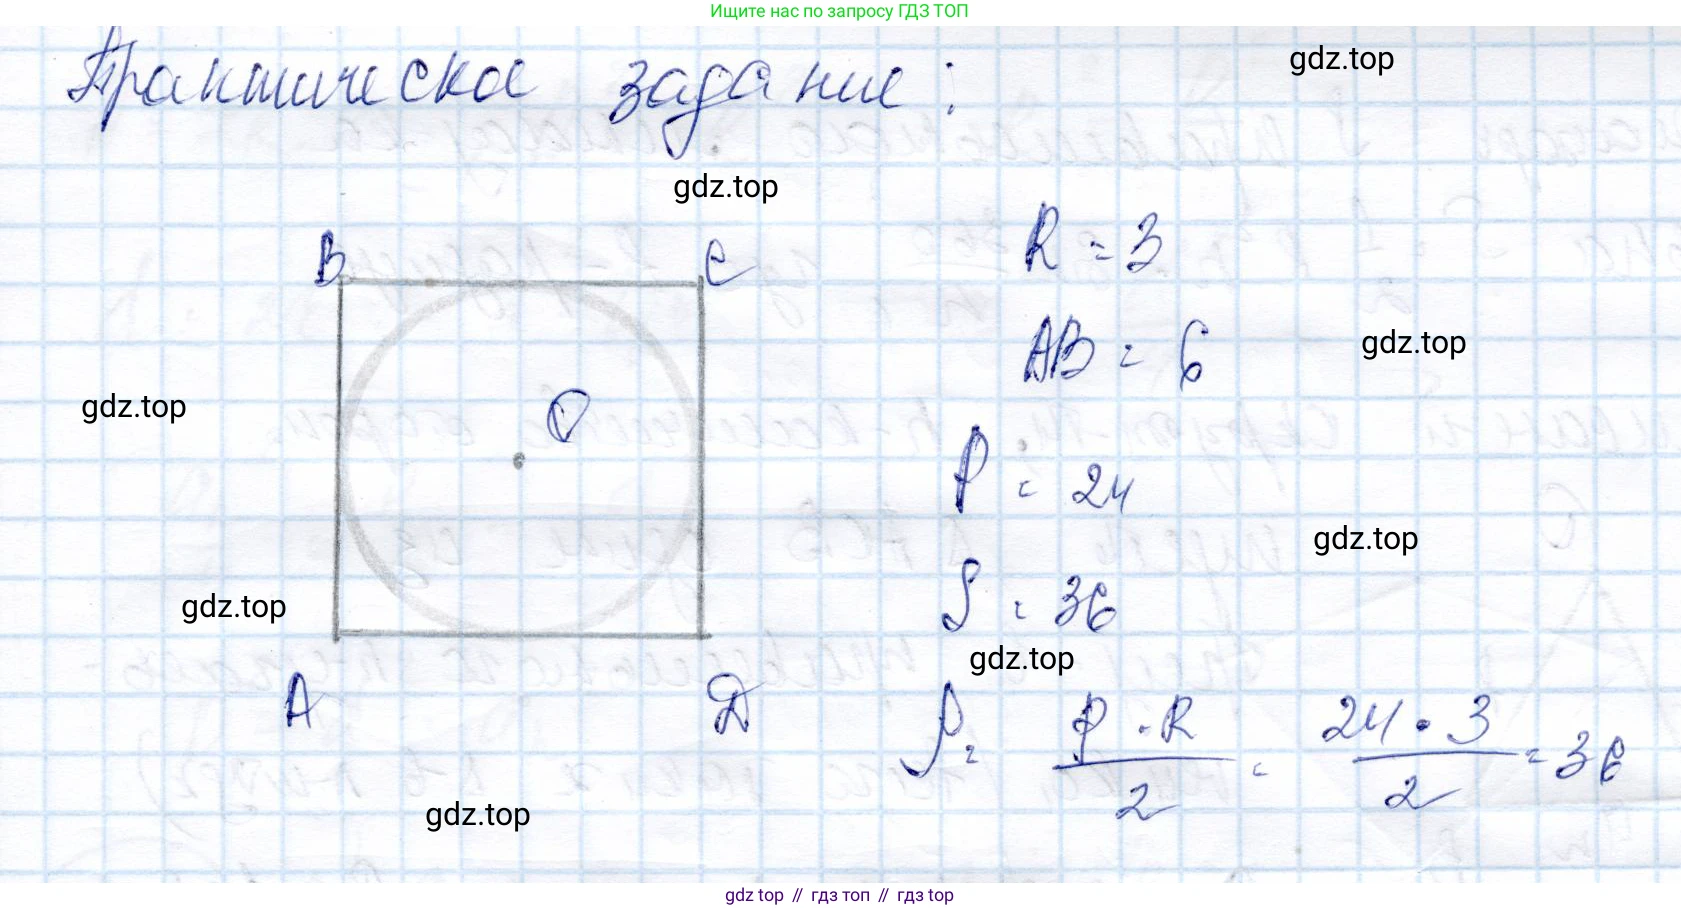 Ищите нас по запросу ГДЗ ТОП
Практическое задание:
gdz.top
gdz.top
B
C
R = 3
AB = 6
gdz.top
gdz.top
O
P = 24
gdz.top
S = 36
gdz.top
gdz.top
A
D
S = P · R / 2 = 24 · 3 / 2 = 36
gdz.top
gdz top // гдз топ // gdz top